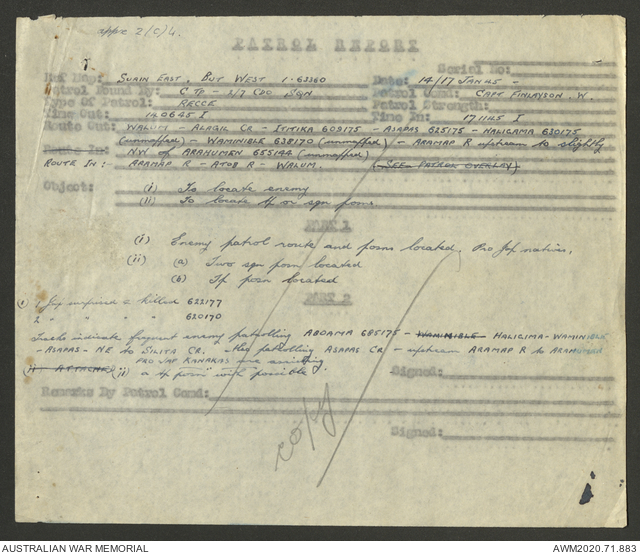 appx 2/(C)/4.
PATROL REPORT
Serial No:
Ref Map: SUAIN EAST, BUT WEST 1-63360 Date: 14/17 JAN 45 -
Patrol Found By: C TP - 2/7 CDO SQN Patrol Comd: CAPT FINLAYSON. W.
Type Of Patrol: RECCE Patrol Strength:
Time Out: 140645 I Time In: 171145 I
Route Out: WALUM - ALAGIL CR - ITITIKA 609175 - ASAPAS 625175 - HALIGAMA 630175
(unmapped) - WAMINIBLE 638170 (unmapped) - ARAMAP R upstream to slightly
Route In: N.W. of ARAHUMEN 655144 (unmapped)
ROUTE IN: ARAMAP R - ATOB R - WALUM. (SEE PATROL OVERLAY)
Object: (i) To locate enemy
(ii) To locate tp or sqn posns
PART 1
(i) Enemy patrol route and posns located. Pro Jap natives.
(ii) (a) Two sqn posn located
(b) Tp posn located
PART 2
(i) 1 Jap surprised & killed 622177
2 " " " 620170
Tracks indicate frequent enemy patrolling ABOAMA 685175 - WAMINIBLE HALIGIMA-WAMINIBLE
- ASAPAS - NE to SILITA CR. - Also patrolling ASAPAS CR - upstream ARAMAP R to ARAHUMEN
PRO JAP KANAKAS are assisting
(ii ATTACHED) (ii) a tp posn with possible.
Signed:
Remarks By Patrol Comd:
copy
Signed:
AUSTRALIAN WAR MEMORIAL
AWM2020.71.883